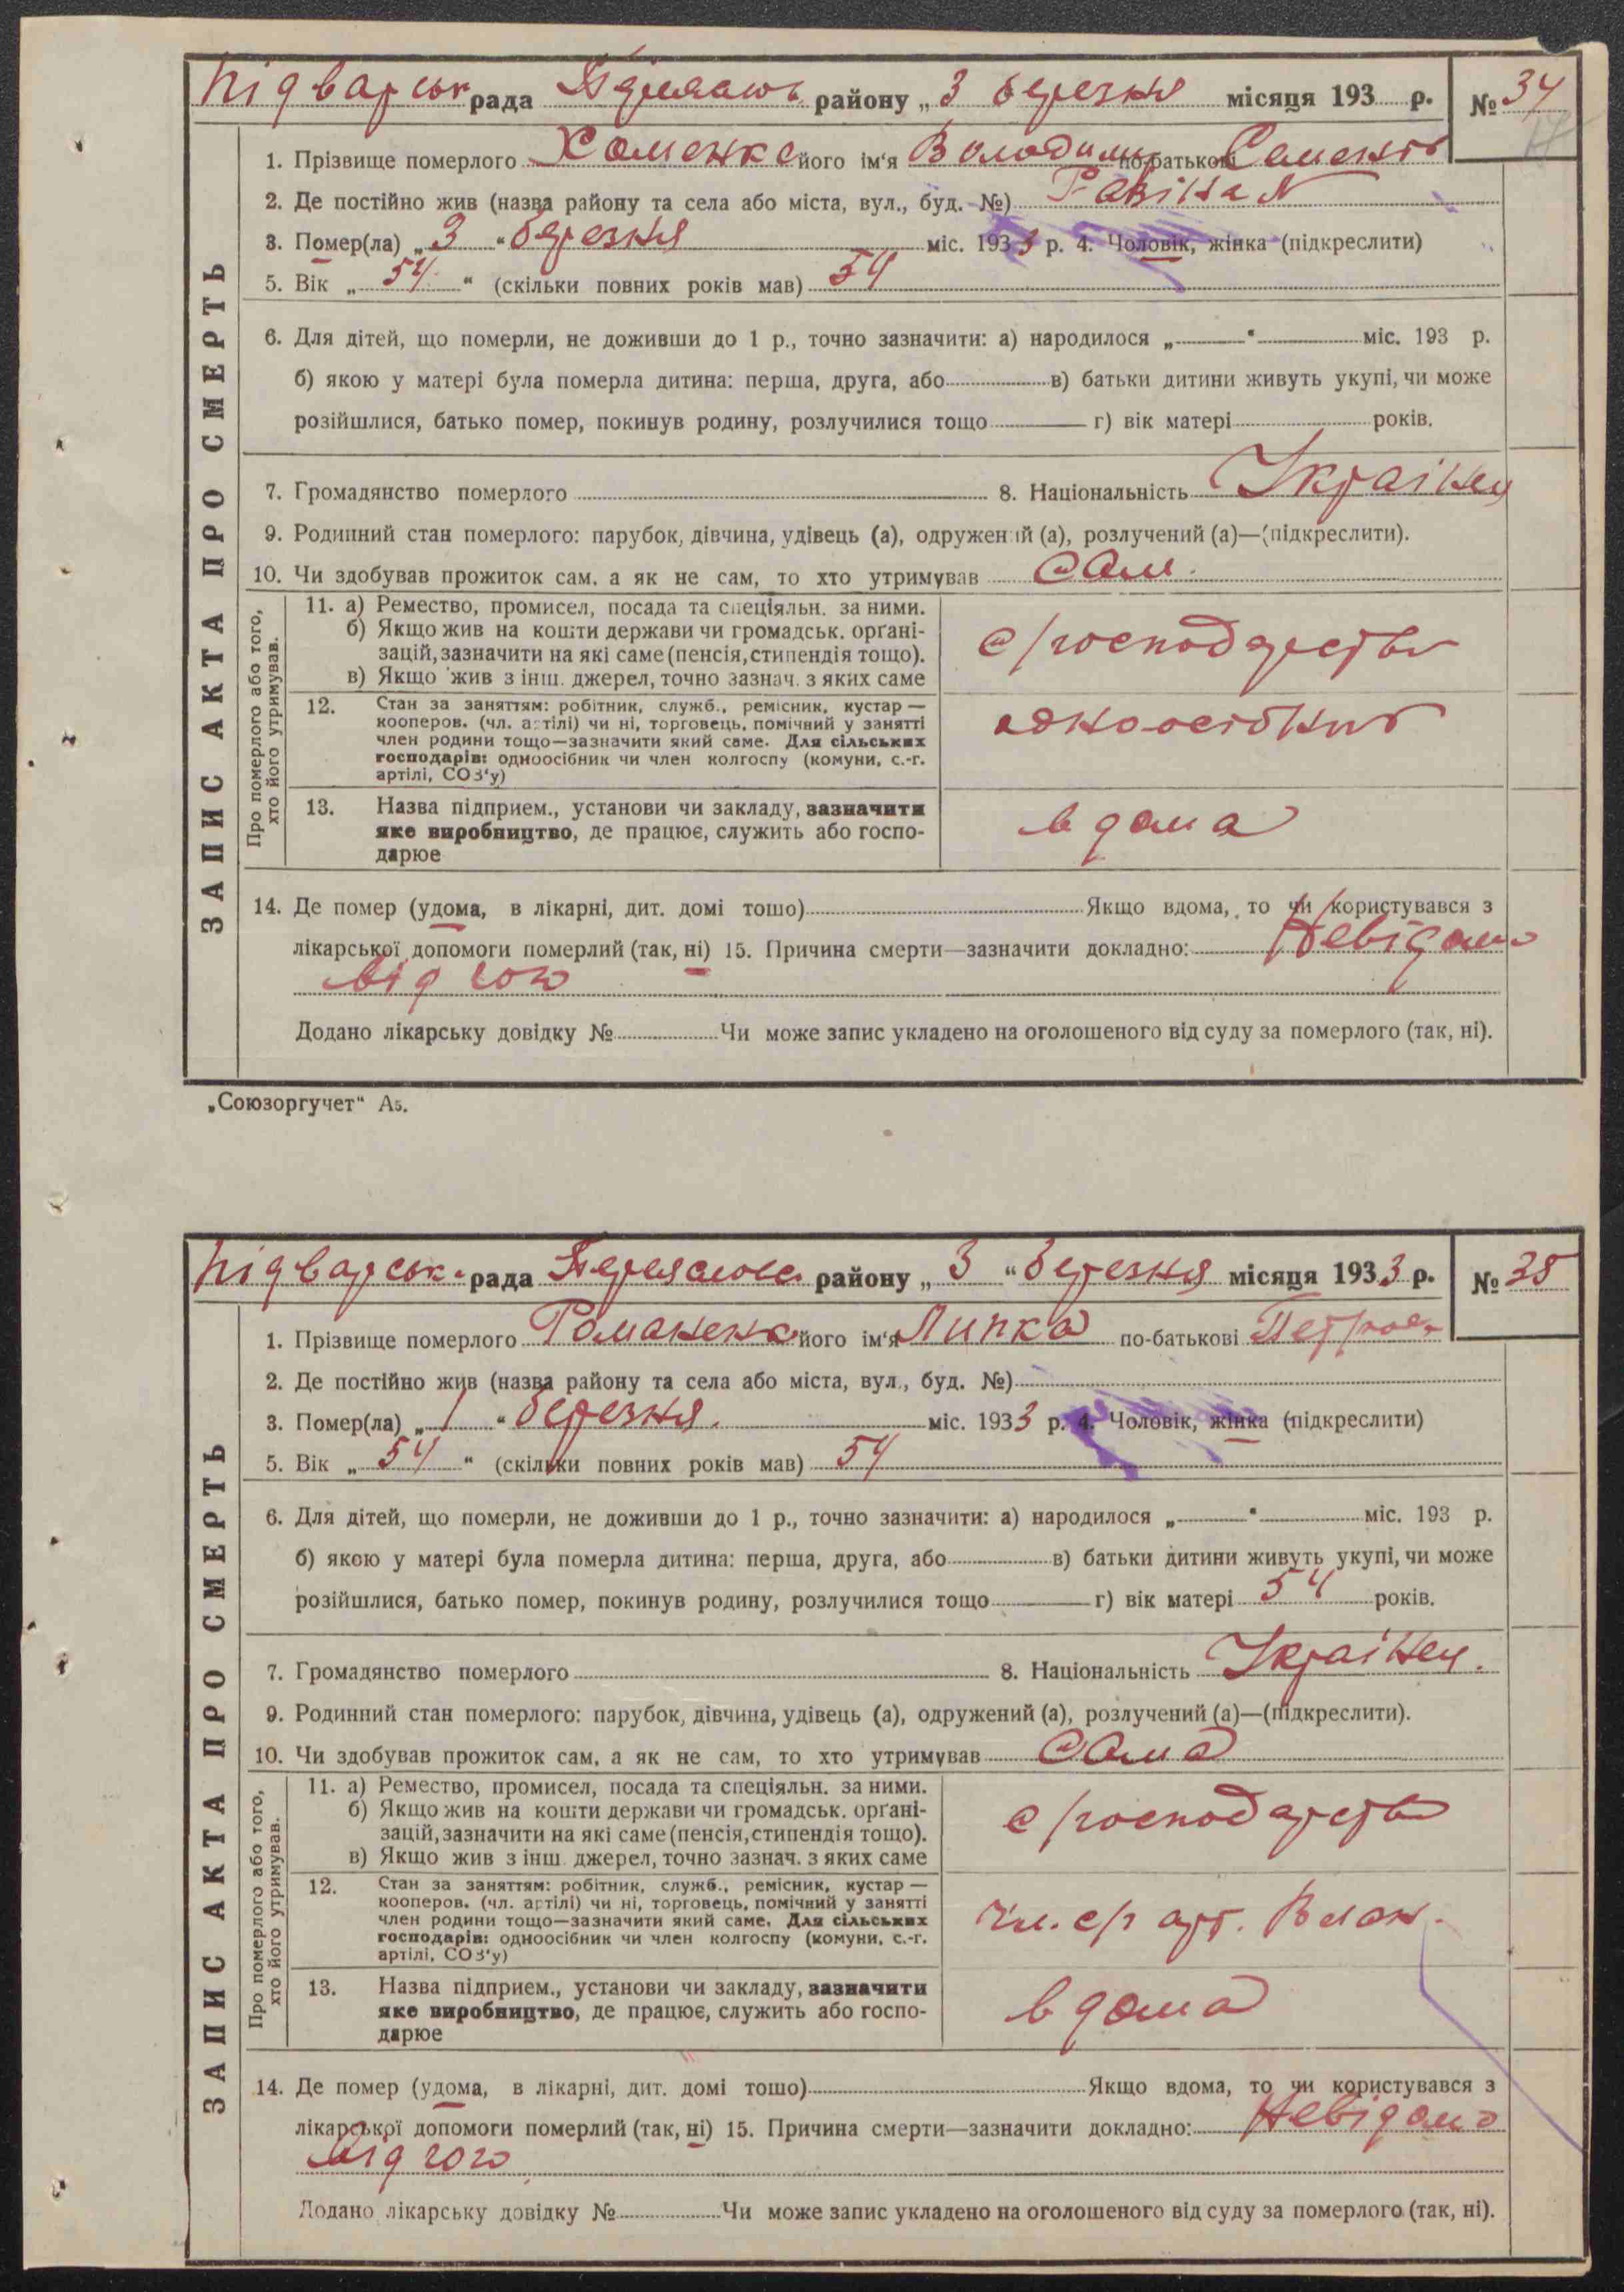 Підварськ рада Переяслів району „ 3 березня місяця 193 р. № 34
ЗАПИС АКТА ПРО СМЕРТЬ
1. Прізвище померлого Хоменко його ім'я Володимир по-батькові Семенов
2. Де постійно жив (назва району та села або міста, вул., буд. №)
3. Помер(ла) „ 3 “ березня міс. 1933 р. 4. Чоловік, жінка (підкреслити)
5. Вік „ 54 “ (скільки повних років мав) 54
6. Для дітей, що померли, не доживши до 1 р., точно зазначити: а) народилося „ “ міс. 193 р.
б) якою у матері була померла дитина: перша, друга, або в) батьки дитини живуть укупі, чи може
розійшлися, батько помер, покинув родину, розлучилися тощо г) вік матері років.
7. Громадянство померлого 8. Національність Українец
9. Родинний стан померлого: парубок, дівчина, удівець (а), одружений (а), розлучений (а)—(підкреслити).
10. Чи здобував прожиток сам, а як не сам, то хто утримував Сам.
Про померлого або того,
хто його утримував.
11. а) Ремество, промисел, посада та спеціяльн. за ними.
б) Якщо жив на кошти держави чи громадськ. органі-
зацій, зазначити на які саме (пенсія, стипендія тощо).
в) Якщо жив з інш. джерел, точно зазнач. з яких саме
с/господарство
12. Стан за заняттям: робітник, служб., ремісник, кустар —
кооперов. (чл. артілі) чи ні, торговець, помічний у занятті
член родини тощо—зазначити який саме. Для сільських
господарів: одноосібник чи член колгоспу (комуни, с.-г.
артілі, СОЗ'у)
одноосібник
13. Назва підприєм., установи чи закладу, зазначити
яке виробництво, де працює, служить або госпо-
дарює
вдома
14. Де помер (удома, в лікарні, дит. домі тошо) Якщо вдома, то чи користувався з
лікарської допомоги померлий (так, ні) 15. Причина смерти—зазначити докладно: Невідомо
від чого
Додано лікарську довідку № Чи може запис укладено на оголошеного від суду за померлого (так, ні).
„Союзоргучет“ А5.
Підварськ рада Переяслов району „ 3 “ березня місяця 1933 р. № 35
ЗАПИС АКТА ПРО СМЕРТЬ
1. Прізвище померлого Романенко його ім'я Липка по-батькові Петров
2. Де постійно жив (назва району та села або міста, вул., буд. №)
3. Помер(ла) „ 1 “ березня. міс. 1933 р. 4. Чоловік, жінка (підкреслити)
5. Вік „ 54 “ (скільки повних років мав) 54
6. Для дітей, що померли, не доживши до 1 р., точно зазначити: а) народилося „ “ міс. 193 р.
б) якою у матері була померла дитина: перша, друга, або в) батьки дитини живуть укупі, чи може
розійшлися, батько помер, покинув родину, розлучилися тощо г) вік матері 54 років.
7. Громадянство померлого 8. Національність Українец.
9. Родинний стан померлого: парубок, дівчина, удівець (а), одружений (а), розлучений (а)—(підкреслити).
10. Чи здобував прожиток сам, а як не сам, то хто утримував Сама
Про померлого або того,
хто його утримував.
11. а) Ремество, промисел, посада та спеціяльн. за ними.
б) Якщо жив на кошти держави чи громадськ. органі-
зацій, зазначити на які саме (пенсія, стипендія тощо).
в) Якщо жив з інш. джерел, точно зазнач. з яких саме
с/господарство
12. Стан за заняттям: робітник, служб., ремісник, кустар —
кооперов. (чл. артілі) чи ні, торговець, помічний у занятті
член родини тощо—зазначити який саме. Для сільських
господарів: одноосібник чи член колгоспу (комуни, с.-г.
артілі, СОЗ'у)
чл. с/г арт.
13. Назва підприєм., установи чи закладу, зазначити
яке виробництво, де працює, служить або госпо-
дарює
вдома
14. Де помер (удома, в лікарні, дит. домі тошо) Якщо вдома, то чи користувався з
лікарської допомоги померлий (так, ні) 15. Причина смерти—зазначити докладно: Невідомо
від чого
Додано лікарську довідку № Чи може запис укладено на оголошеного від суду за померлого (так, ні).